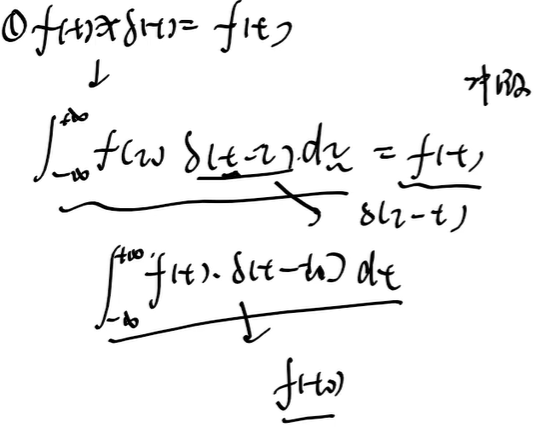 ① f(t)*δ(t)=f(t)
↓
∫_{-∞}^{+∞} f(τ) δ(t-τ).dτ = f(t)
δ(τ-t)
∫_{-∞}^{+∞} f(t).δ(t-t₀) dt
f(t₀)